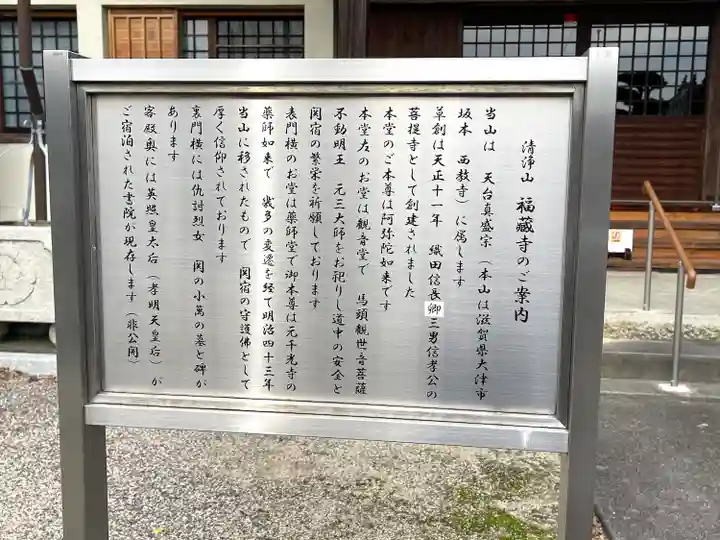 清淨山 福藏寺のご案内
当山は 天台真盛宗（本山は滋賀県大津市
坂本 西教寺）に属します
草創は天正十一年 織田信長卿三男信孝公の
菩提寺として創建されました
本堂のご本尊は阿弥陀如来です
本堂左のお堂は観音堂で 馬頭観世音菩薩
不動明王 元三大師をお祀りし道中の安全と
関宿の繁栄を祈願しております
表門横のお堂は薬師堂で御本尊は元千光寺の
薬師如来で 幾多の変遷を経て明治四十三年
当山に移されたもので 関宿の守護佛として
厚く信仰されております
裏門横には仇討烈女 関の小萬の墓と碑が
あります
客殿奥には英照皇太后（孝明天皇后）が
ご宿泊された書院が現存します（非公開）